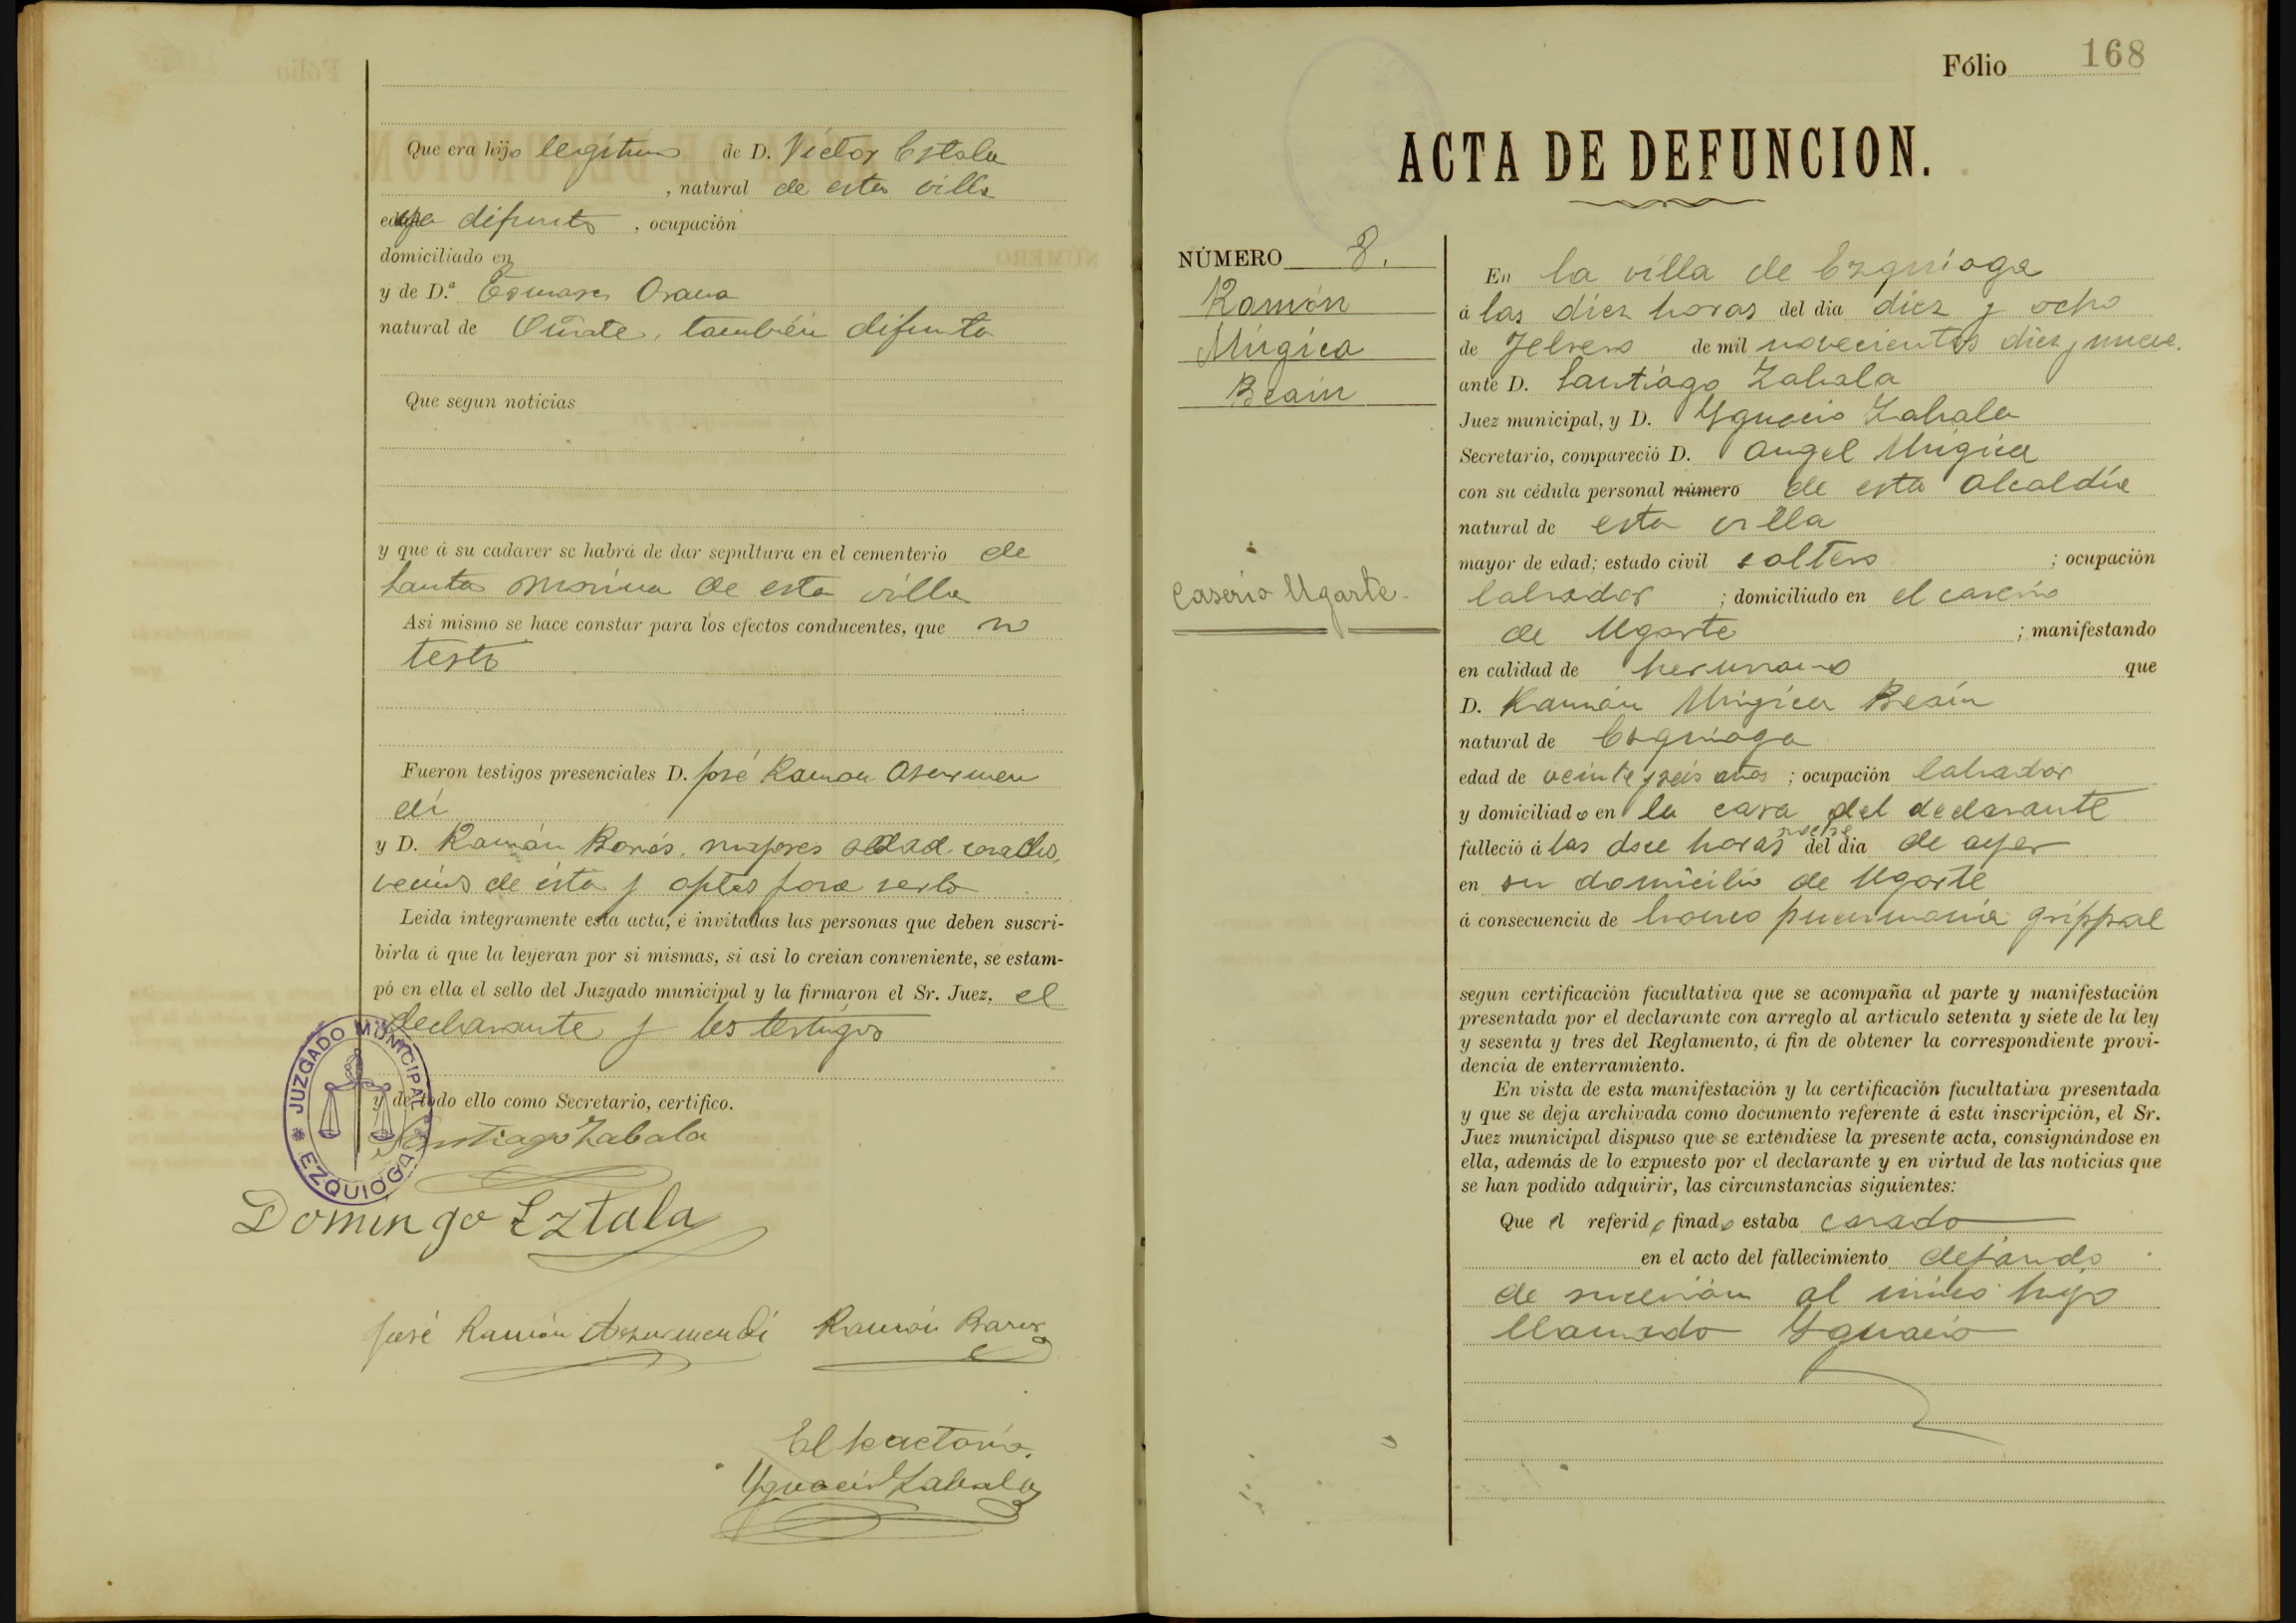 Que era hijo legítimo de D. Víctor Estala
, natural de esta villa
ya difunto , ocupación
domiciliado en
y de D.ª Tomasa Orana
natural de Oñate, también difunta
Que segun noticias
y que á su cadaver se habrá de dar sepultura en el cementerio de
Santa Marina de esta villa
Asi mismo se hace constar para los efectos conducentes, que no
testó
Fueron testigos presenciales D. José Ramon Asurmen
di
y D. Ramón Barós, mayores edad casados,
vecinos de ésta y aptos para serlo
Leida integramente esta acta, é invitadas las personas que deben suscri-
birla á que la leyeran por si mismas, si asi lo creian conveniente, se estam-
pó en ella el sello del Juzgado municipal y la firmaron el Sr. Juez, el
declarante y los testigos
y de todo ello como Secretario, certifico.
JUZGADO MUNICIPAL * EZQUIOGA *
Santiago Zabala
Domingo Eztala
José Ramón Asurmendi Ramón Baros
El Secretario,
Ygnacio Zabala
Fólio 168
ACTA DE DEFUNCION.
NÚMERO 8.
Ramón
Múgica
Beain
Caserio Ugarte.
En la villa de Ezquioga
á las diez horas del dia diez y ocho
de Febrero de mil novecientos diez y nueve.
ante D. Santiago Zabala
Juez municipal, y D. Ygnacio Zabala
Secretario, compareció D. Angel Múgica
con su cédula personal número de esta Alcaldía
natural de esta villa
mayor de edad; estado civil soltero ; ocupación
labrador ; domiciliado en el caserío
de Ugarte ; manifestando
en calidad de hermano que
D. Ramón Múgica Beaín
natural de Ezquioga
edad de veinte y seis años ; ocupación labrador
y domiciliado en la casa del declarante
falleció á las doce horas noche del dia de ayer
en su domicilio de Ugarte
á consecuencia de bronco pneumonía grippal
segun certificación facultativa que se acompaña al parte y manifestación
presentada por el declarante con arreglo al articulo setenta y siete de la ley
y sesenta y tres del Reglamento, á fin de obtener la correspondiente provi-
dencia de enterramiento.
En vista de esta manifestación y la certificación facultativa presentada
y que se deja archivada como documento referente á esta inscripción, el Sr.
Juez municipal dispuso que se extendiese la presente acta, consignándose en
ella, además de lo expuesto por el declarante y en virtud de las noticias que
se han podido adquirir, las circunstancias siguientes:
Que el referido finado estaba casado
en el acto del fallecimiento dejando
de sucesión al único hijo
llamado Ygnacio